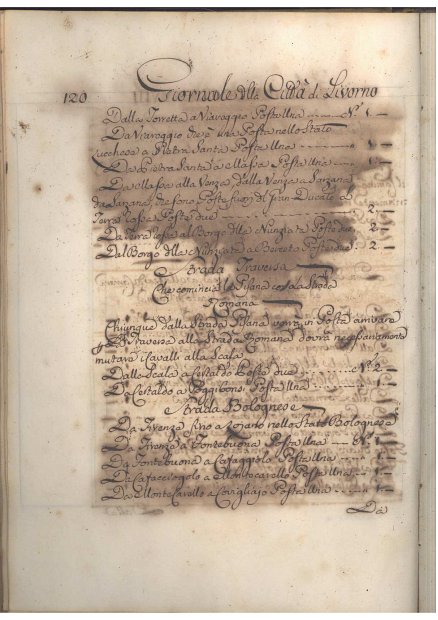 120 Giornale della Città di Livorno
Dalla Torretta a Viareggio Posta Una N.º 1.
Da Viareggio che è una Posta nello Stato
Lucchese a Pietra Santa Poste Uno 1
Da Pietra Santa a Massa Posta Una 1
Da Massa alla Venza, dalla Venza a Sarzana
da Sarzana, che sono Poste fuori del Gran Ducato a
Terra Poste due 2.
Da Terra al Borgo della Nunziata Poste due 2.
Dal Borgo della Nunziata a Bereeto Poste due 2.
Strada Traversa
Che comincia la Pisana con la Strada
Romana
Chiunque dalla Strada Pisana vorrà in Posta arrivare
Traversa alla Strada Romana dovrà necessariamente
mutare i Cavalli alla Scala
Dalla Scala a Certaldo Poste due N.º 2
Da Certaldo a Poggibonsi Posta Una 1
Strada Bolognese
Da Firenze fino a nello Stato Bolognese
Da Firenze a Fontebuona Posta Una N.º 1
Da Fontebuona a Cafaggiolo Posta Una 1
Da a Montecarello Posta Una 1
Da Monte Carello a Covigliajo Posta Una 1
Da